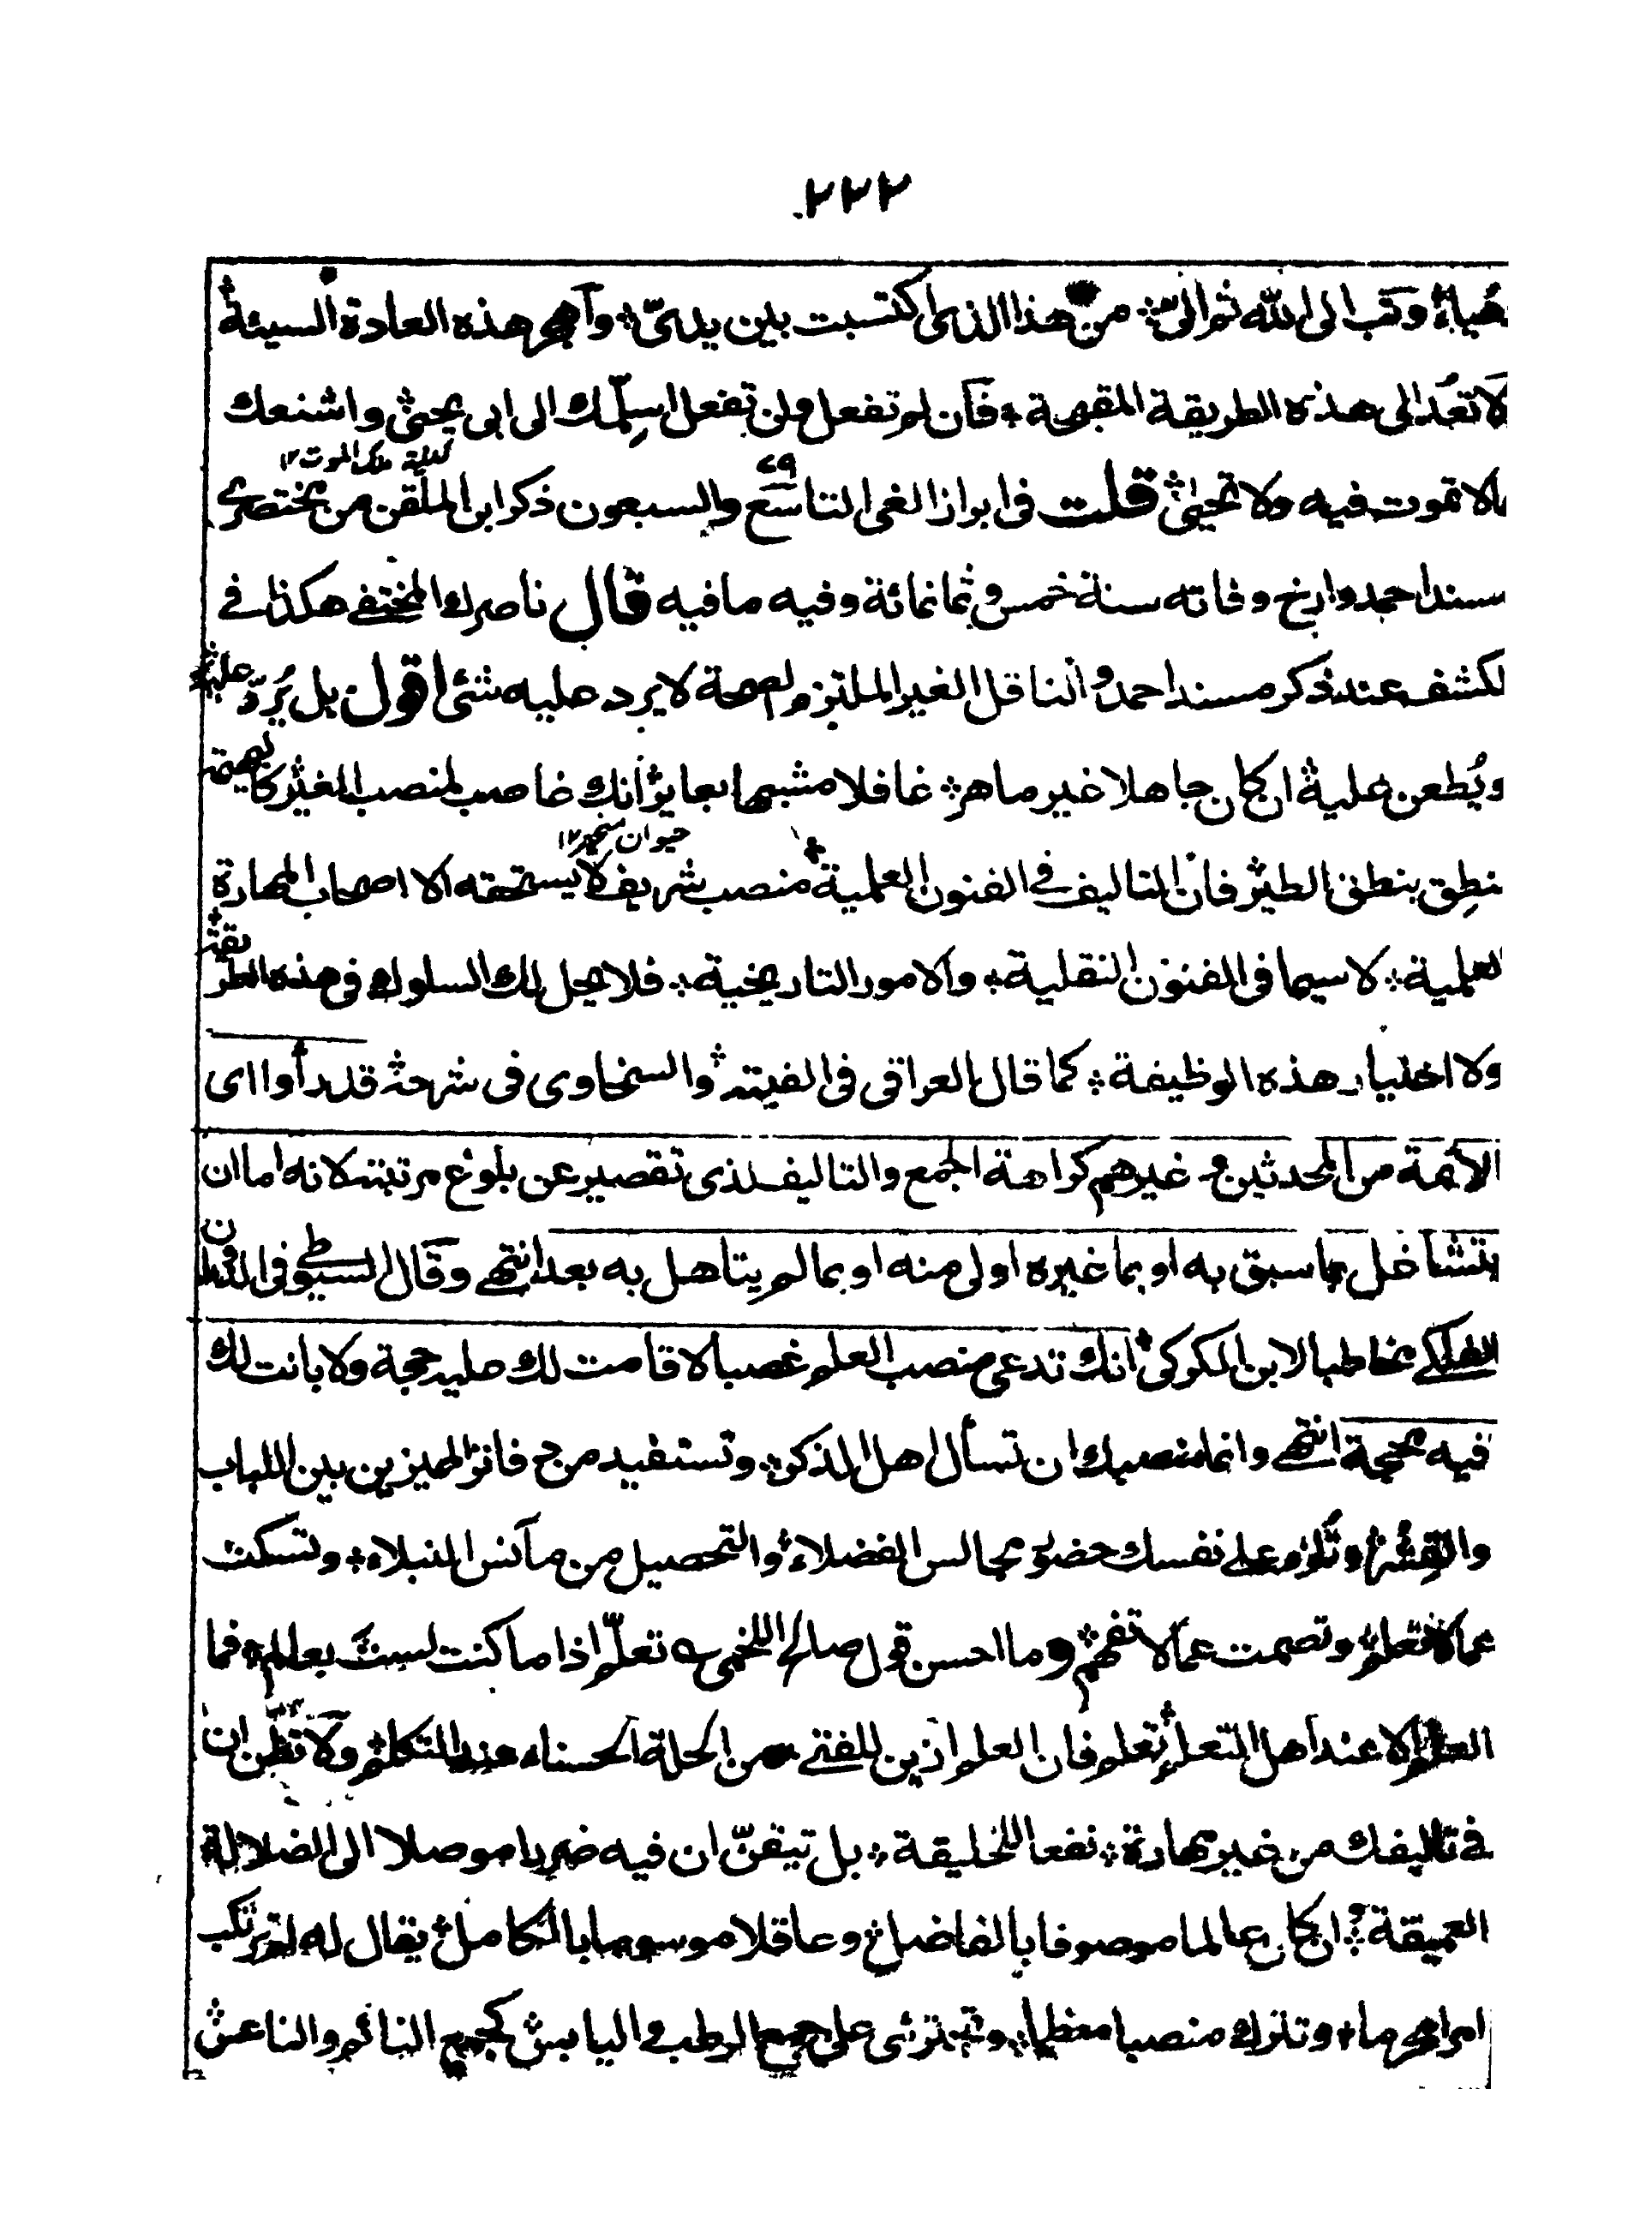 ٢٢٢
هباء وتب الى الله ثم الىّ من هذا الذى اكتسبت بين يدىّ واهجر هذه العادة السيئة
لا تعُد الى هذه الطريقة القبيحة فان لم تفعل ولن تفعل اسلّمك الى ابى يحيى واشنعك
كنية ملك الموت ١٢
مالا تموت فيه ولا تحيى قلت فى ابراز الغى التاسع والسبعون ذكر ابن الملقن من مختصرى
٧٩
مسند احمد وارخ وفاته سنة خمس وثمانمائة وفيه ما فيه قال ناصرك المختفى هكذا فى
الكشف عند ذكر مسند احمد والناقل الغير الملتزم لصحة لا يرد عليه شئ اقول بل يُردّ عليه
ويُطعن عليه ان كان جاهلا غير ماهر غافلا مشبها بعابر وانك غاصب لمنصب الغير كبهيمة
حيوان ١٢
تنطِق بنطق الطير فان التاليف فى الفنون العلمية منصب شريف لا يستحقه الا اصحاب المهارة
العلمية لا سيما فى الفنون النقلية والامور التاريخية فلا يحل لك السلوك فى هذه الطريقة
ولا اختيار هذه الوظيفة كما قال العراقى فى الفيته والسخاوى فى شرحه قد رأوا اى
الائمة من المحدثين وغيرهم كراهة الجمع والتاليف لذى تقصير عن بلوغ مرتبته لانه اما ان
يتشاغل بما سبق به او بما غيره اولى منه او بما لم يتاهل به بعد انتهى وقال السيوطى فى
الفلكى مخاطبا لابن الكركى انك تدعى منصب العلم غصبا لا قامت لك عليه حجة ولا بانت لك
فيه محجة انتهى وانما منصبك ان تسأل اهل الذكر وتستفيد من المميزين بين اللباب
والقشر وتلزم على نفسك حضور مجالس الفضلاء والتحصيل من مآنس النبلاء وتسكت
عما لا تعلم وتصمت عما لا تفهم وما احسن قول صالح اللخمى تعلّم اذا ما كنت لست بعالم فما
العلم الا عند اهل التعلم تعلم فان العلم ازين للفتى من الحلة الحسناء عند التكلم ولا تظن ان
فى تاليفك من غير مهارة نفعا للخليقة بل تيقنّ ان فيه ضررا موصلا الى الضلالة
العميقة وان كان عالما موصوفا بالفاضل وعاقلا موسوما بالكامل يقال له لم ترتكب
امرا محرما وتترك منصبا معظما وتجترئ على جمع الرطب واليابس كجمع النائم والناعس